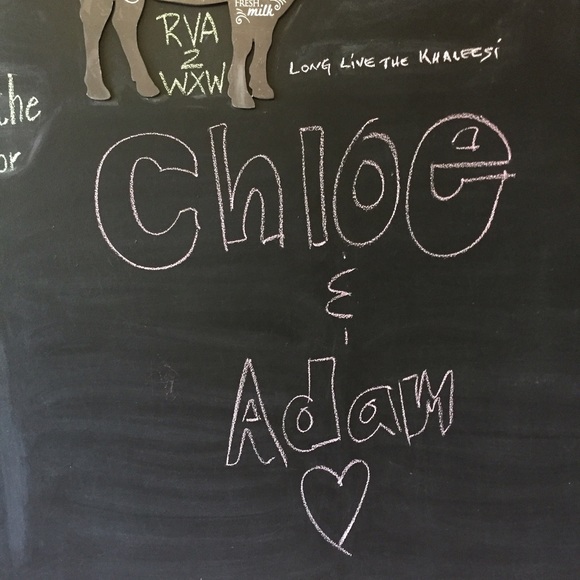 FRESH
milk
RVA
2
WXW
LONG LiVE THE KHALEESi
the
or
Chloe
&
Adam